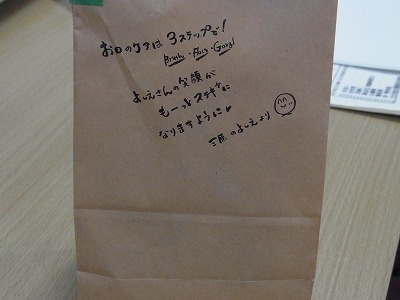 お口のケアは3ステップで!
Brush・Floss・Gargl
よしえさんの笑顔が
もーっとステキに
なりますように
三原のよしえより